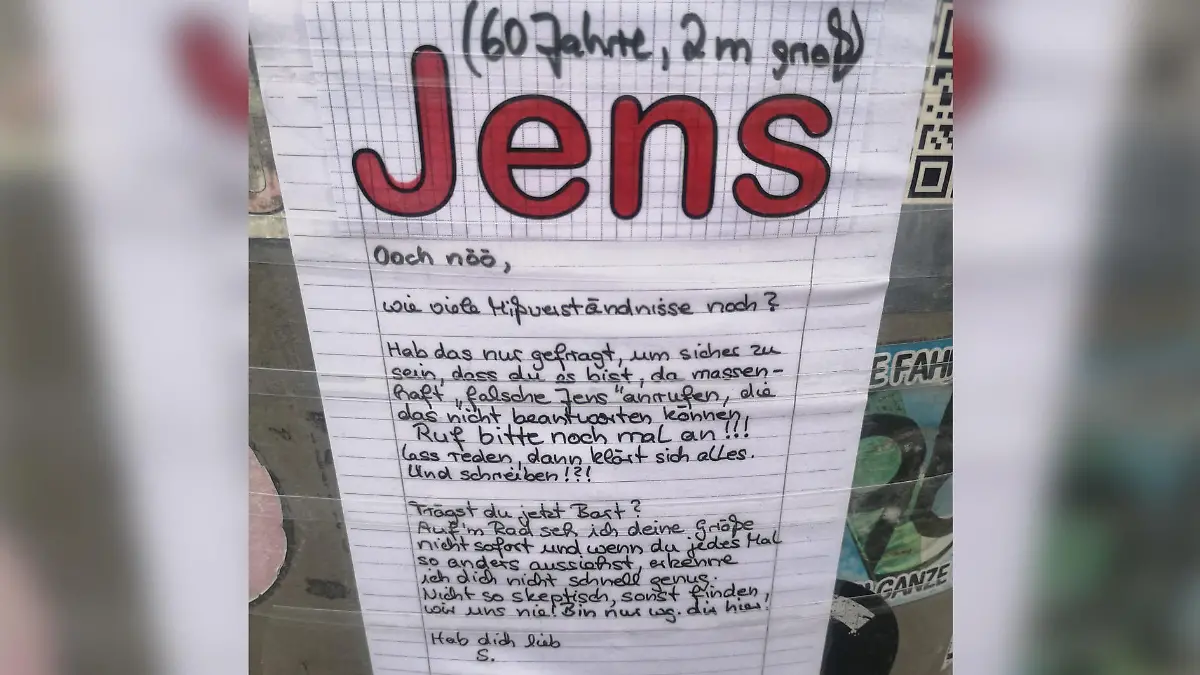 (60 Jahre, 2m groß)
Jens
Ooch nöö,
wie viele Mißverständnisse noch?
Hab das nur gefragt, um sicher zu
sein, dass du es bist, da massen-
haft „falsche Jens" anrufen, die
das nicht beantworten können.
Ruf bitte noch mal an!!!
Lass reden, dann klärt sich alles.
Und schreiben!?!
Trägst du jetzt Bart?
Auf'm Rad seh ich deine Größe
nicht sofort und wenn du jedes Mal
so anders aussiehst, erkenne
ich dich nicht schnell genug.
Nicht so skeptisch, sonst finden,
wir uns nie! Bin nur wg. dir hier.
Hab dich lieb
S.
E FAH
GANZE